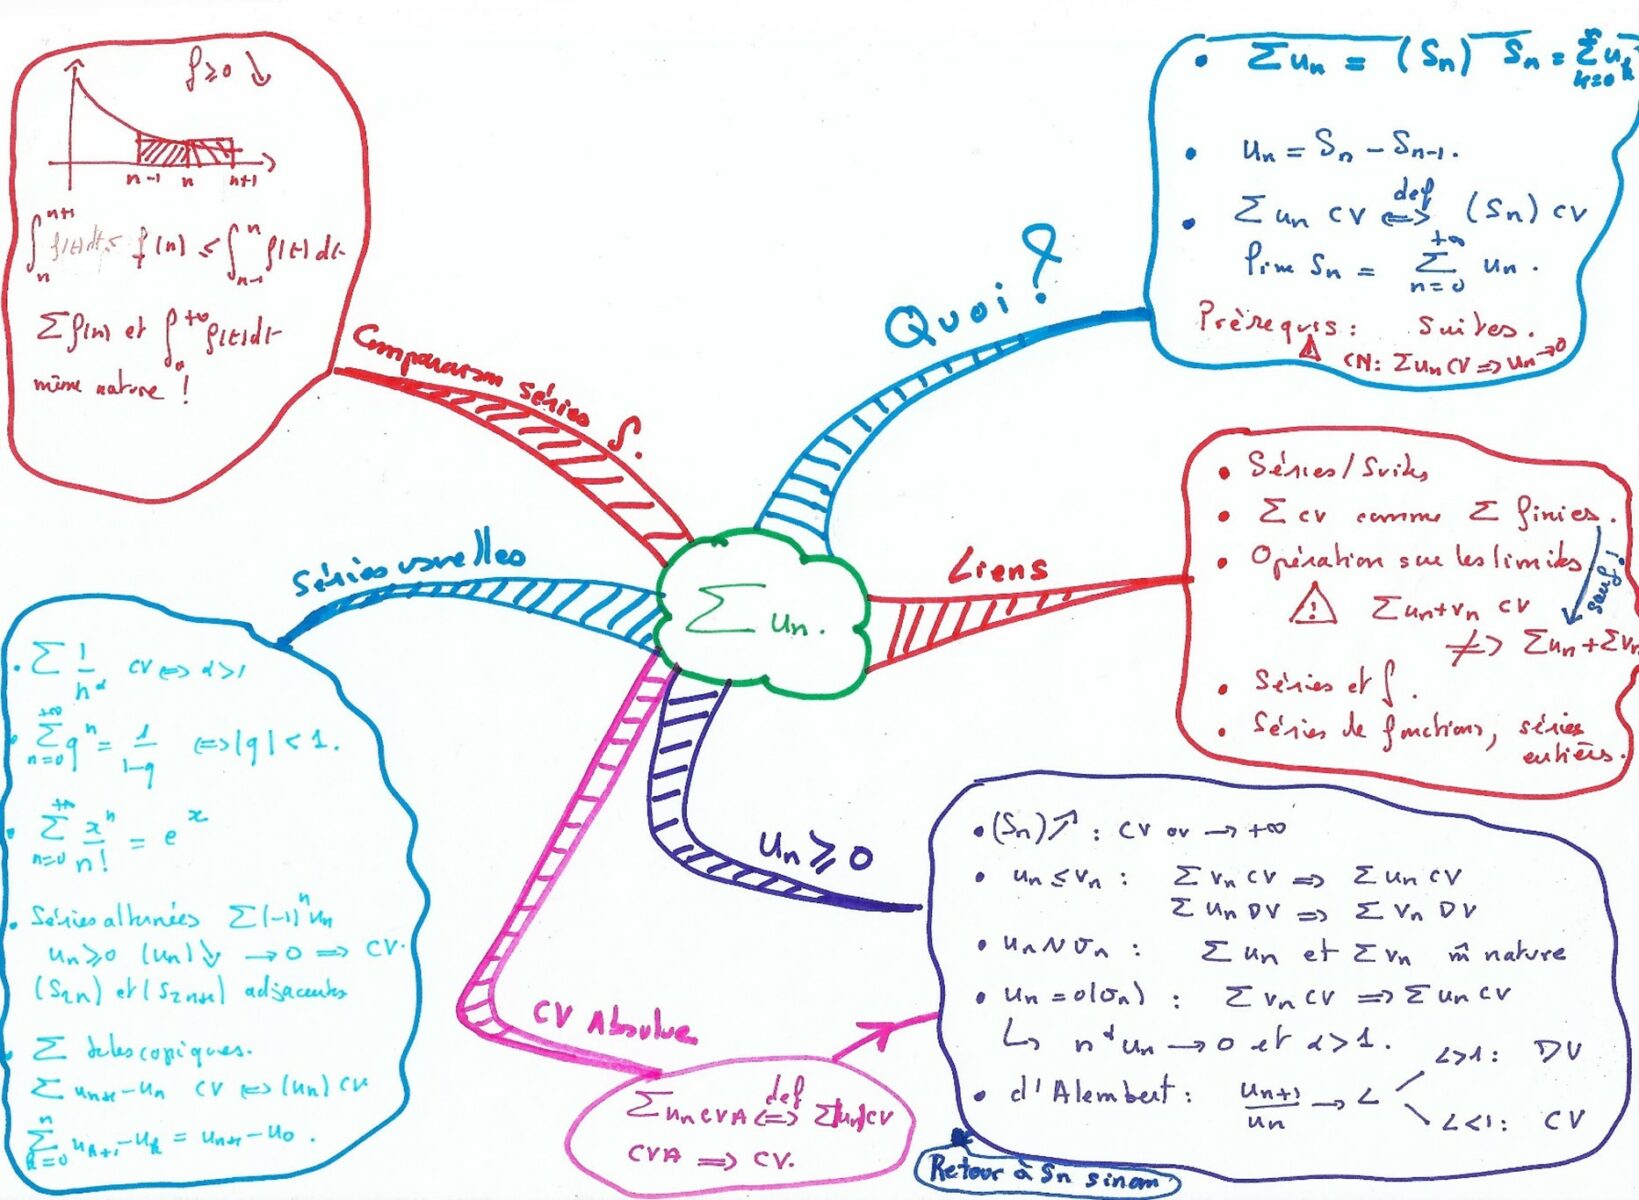 Σ un.
Quoi ?
• Σ un = (Sn) Sn = Σ k=0 n uk
• un = Sn - Sn-1.
• Σ un CV ⟺ def (Sn) CV
lim Sn = Σ n=0 +∞ un.
Prérequis : Suites.
⚠ CN : Σ un CV ⟹ un → 0
Liens
• Séries / Suites
• Σ CV comme Σ finies.
• Opération sur les limites
sauf !
⚠ Σ un+vn CV
⇏ Σ un + Σ vn
• Séries et ∫.
• Séries de fonctions, séries
entières.
un ⩾ 0
• (Sn) ↗ : CV ou → +∞
• un ≤ vn : Σ vn CV ⟹ Σ un CV
Σ un DV ⟹ Σ vn DV
• un ~ vn : Σ un et Σ vn m̂ nature
• un = o(vn) : Σ vn CV ⟹ Σ un CV
↳ n^α un → 0 et α > 1.
• d'Alembert : un+1/un → L
L>1 : DV
L<1 : CV
Retour à Sn sinon
CV Absolue
Σ un CVA ⟺ def Σ |un| CV
CVA ⟹ CV.
Séries usuelles
• Σ 1/n^α CV ⟺ α>1
• Σ n=0 +∞ q^n = 1/1-q ⟺ |q| < 1.
• Σ n=0 +∞ x^n/n! = e^x
• Séries alternées Σ (-1)^n un
un ⩾ 0 (un) ↘ → 0 ⟹ CV.
(S2n) et (S2n+1) adjacentes
• Σ télescopiques.
Σ un+1 - un CV ⟺ (un) CV
Σ k=0 n uk+1 - uk = un+1 - u0.
Comparaison séries ∫.
f ⩾ 0 ↘
n-1 n n+1
∫ n n+1 f(t)dt ≤ f(n) ≤ ∫ n-1 n f(t)dt
Σ f(n) et ∫ a +∞ f(t)dt
même nature !